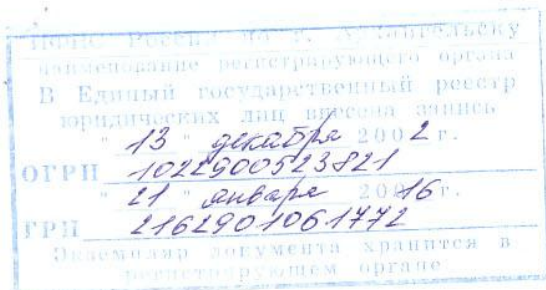 ИФНС России по г. Архангельску
наименование регистрирующего органа
В Единый государственный реестр
юридических лиц внесена запись
" 13 " декабря 2002 г.
ОГРН 1022900523821
" 21 " января 2016 г.
ГРН 2162901061772
Экземпляр документа хранится в
регистрирующем органе